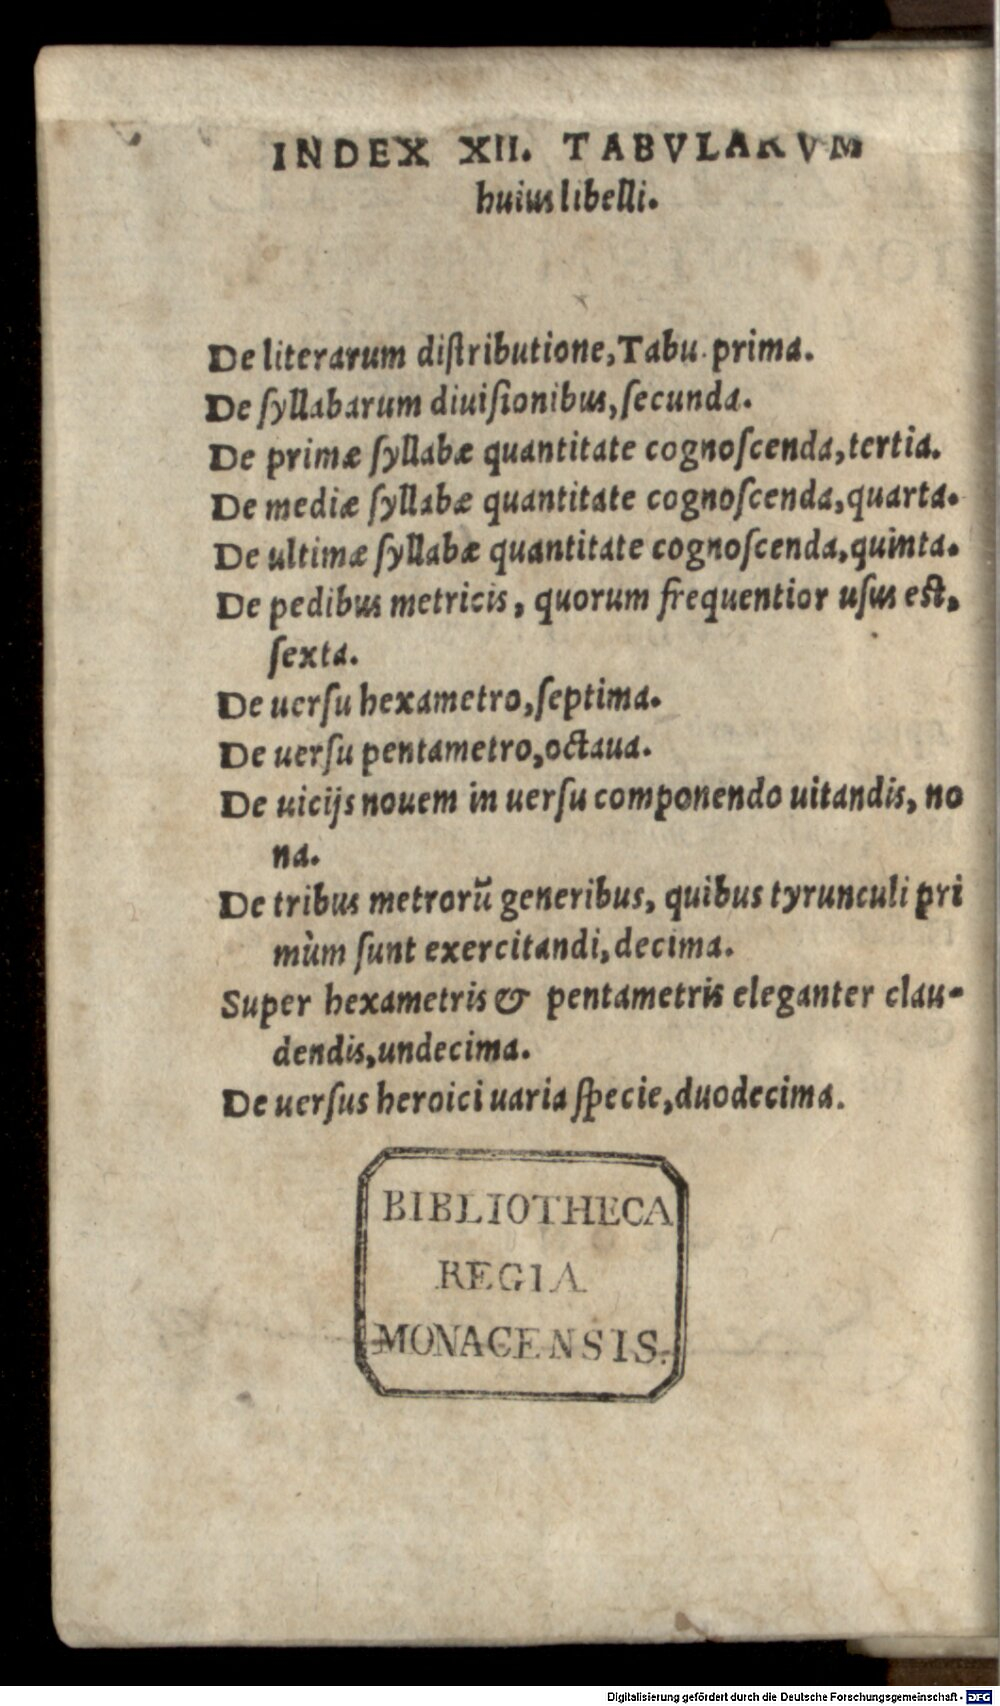 INDEX XII. TABVLARVM
huius libelli.
De literarum diſtributione, Tabu. prima.
De ſyllabarum diuiſionibus, ſecunda.
De primæ ſyllabæ quantitate cognoſcenda, tertia.
De mediæ ſyllabæ quantitate cognoſcenda, quarta.
De ultimæ ſyllabæ quantitate cognoſcenda, quinta.
De pedibus metricis, quorum frequentior uſus est,
ſexta.
De uerſu hexametro, ſeptima.
De uerſu pentametro, octaua.
De uicijs nouem in uerſu componendo uitandis, no
na.
De tribus metrorũ generibus, quibus tyrunculi pri
mùm ſunt exercitandi, decima.
Super hexametris & pentametris eleganter clau-
dendis, undecima.
De uerſus heroici uaria ſpecie, duodecima.
BIBLIOTHECA
REGIA
MONACENSIS.
Digitalisierung gefördert durch die Deutsche Forschungsgemeinschaft - DFG